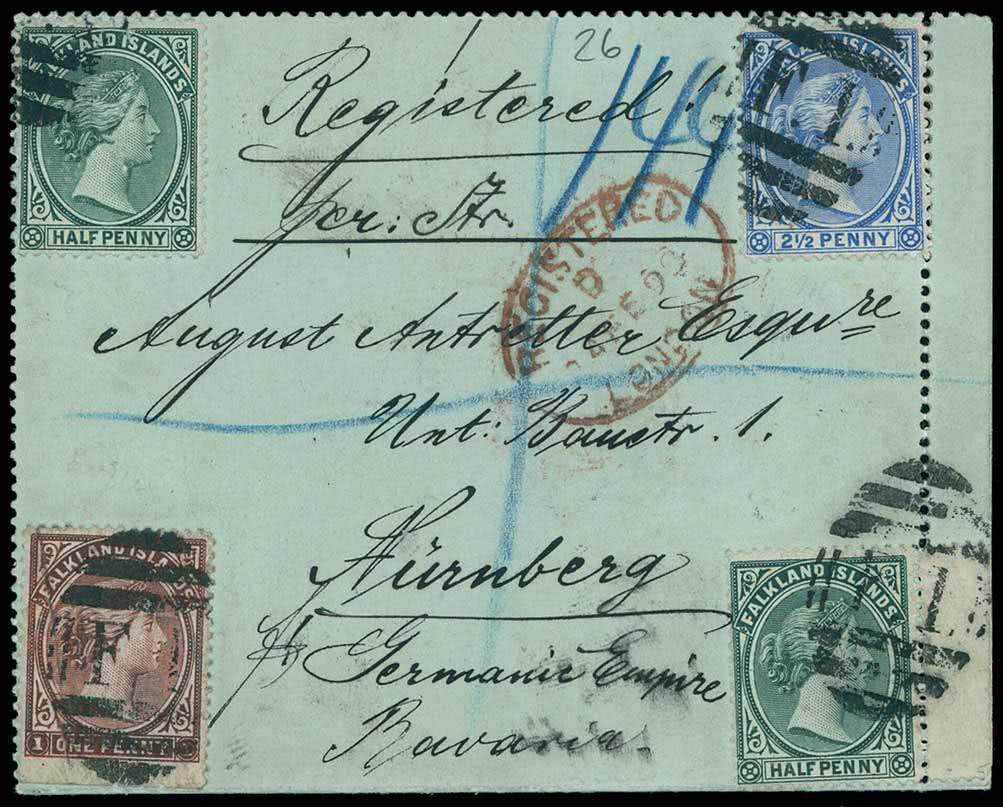 FALKLAND ISLANDS
HALFPENNY
26
Registered!
FALKLAND ISLANDS
F.I.
2½ PENNY
per: Str.
REGISTERED
LONDON
August Antretter Esqure
Unt: Baustr. 1.
Nürnberg
Germanic Empire
Bavaria.
FALKLAND ISLANDS
F
1 ONE PENNY
FALKLAND ISLANDS
F.I.
HALFPENNY